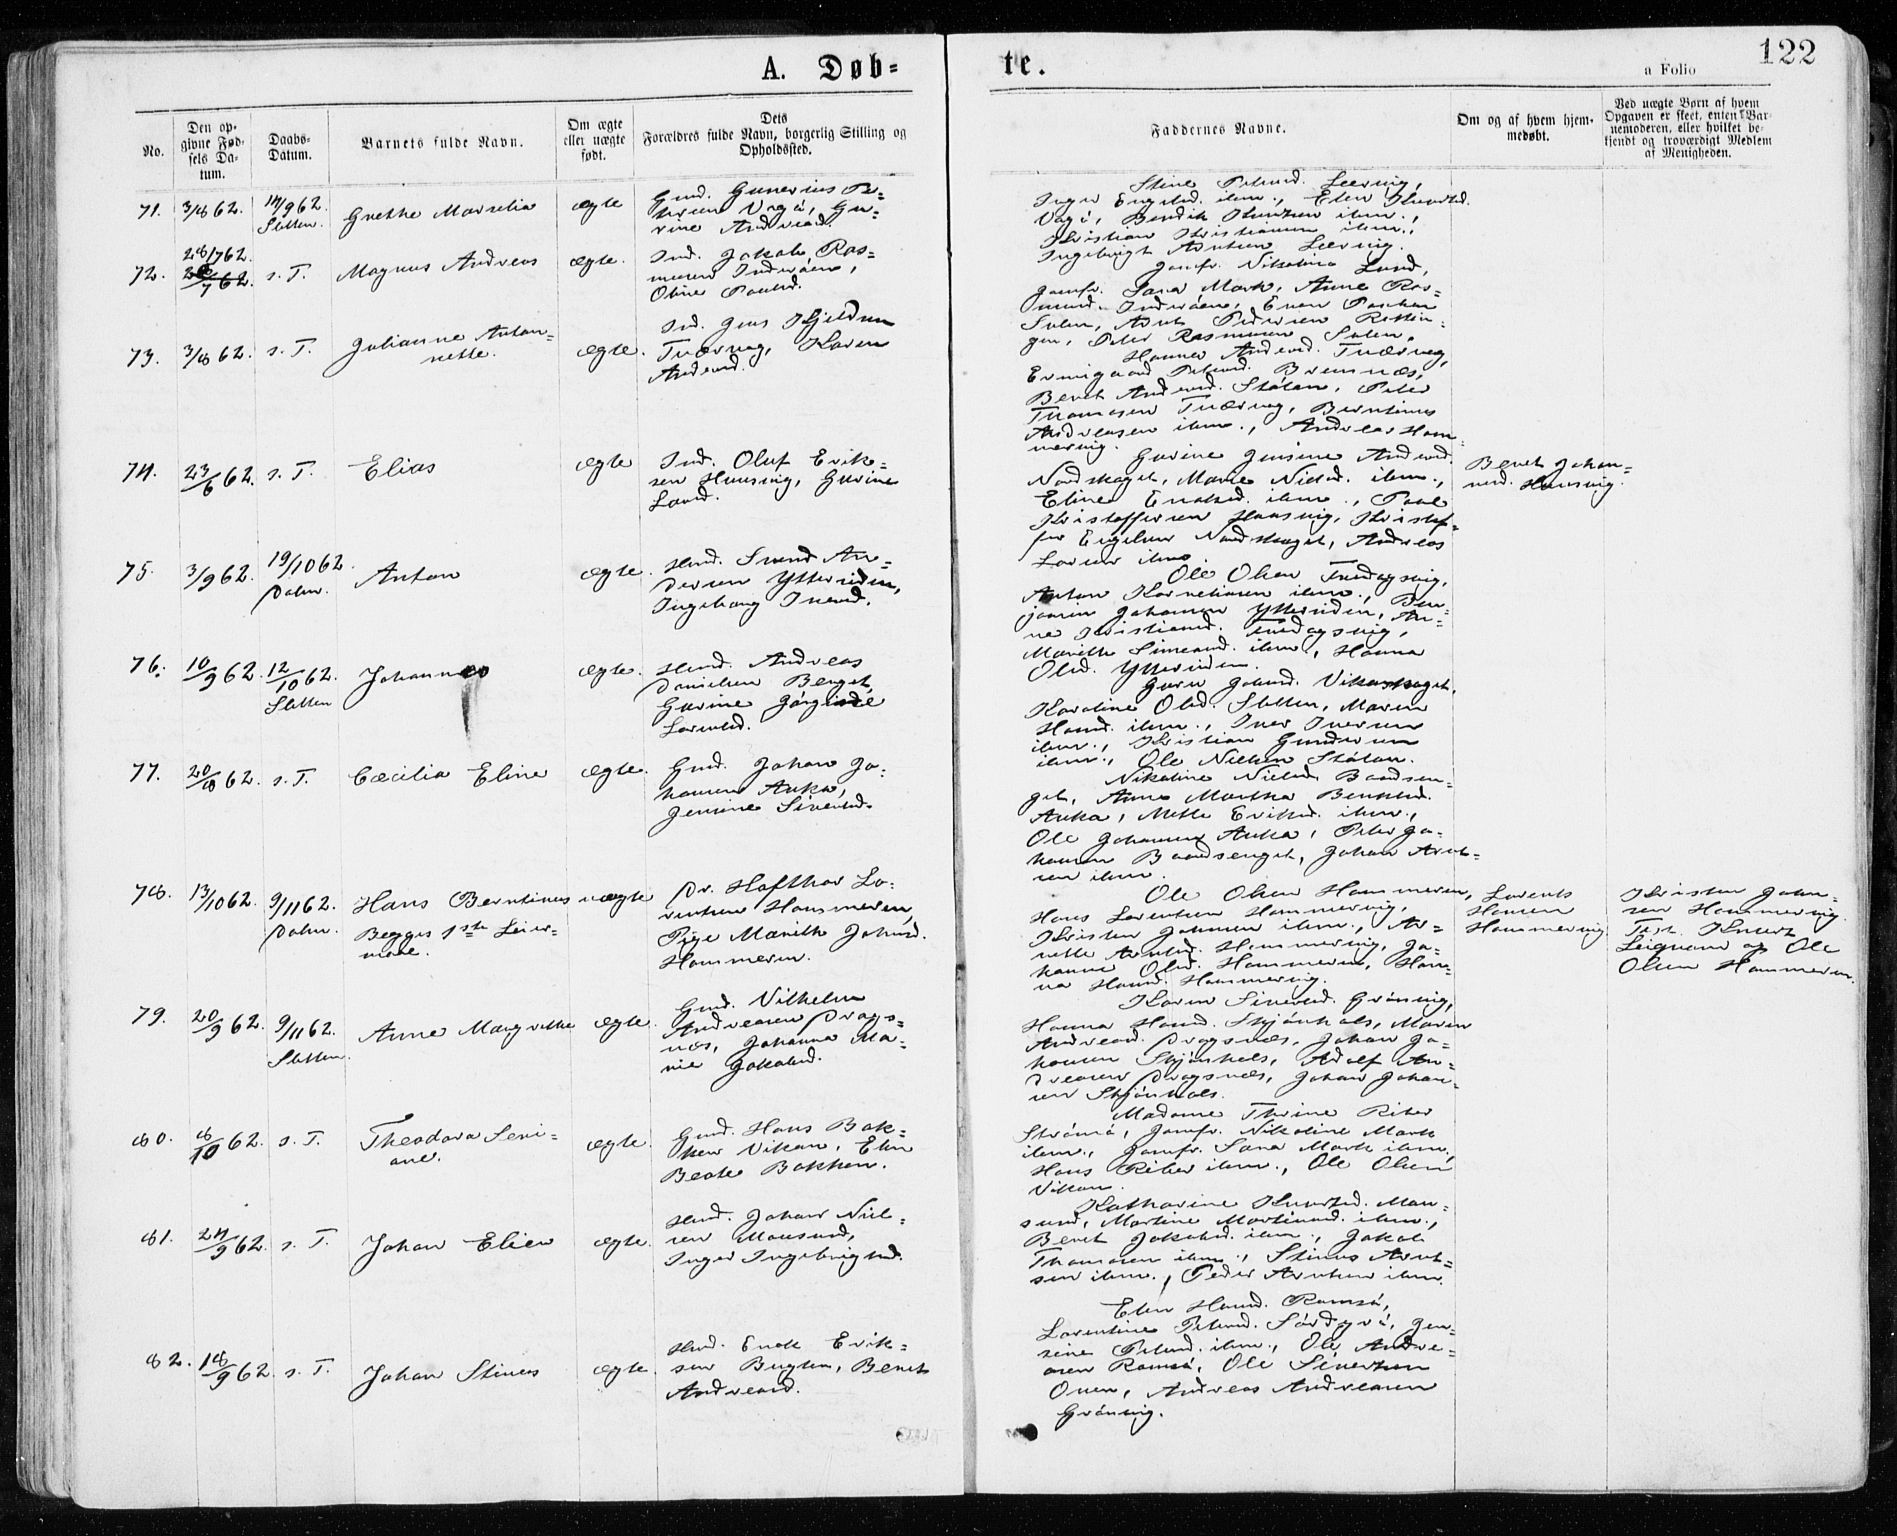 122
A. Døb=
te.
a Folio
No.
Den op-
givne Fød-
sels Da-
tum.
Daabs-
Datum.
Barnets fulde Navn.
Om ægte
eller uægte
født.
Dets
Forældres fulde Navn, borgerlig Stilling og
Opholdssted.
Faddernes Navne.
Om og af hvem hjem-
medøbt.
Ved uægte Børn af hvem
Opgaven er skeet, enten Bar-
nemoderen, eller hvilket be-
kjendt og troværdigt Medlem
af Menigheden.
71. 3/8 62. 14/9 62. Sletten. Grethe Marselia ægte
Gmd. Gunerius Pe=
tersen Vagø, Gu=
rine Andreasd.
Stine Petersd. Leervig,
Inger Engelsd. ibm., Elen Knudsd.
Vagø, Bendik ibm.,
Kristian Kristiansen ibm.,
Ingebrigt Arntsen Leervig.
72. 28/7 62. s. T. Magnus Andreas ægte.
Ind. Jakob Ras=
mussen Inderøen,
Oline Paulsd.
Jomfr. Nikoline Lund,
Jomfr. Sara Mork, Anne Ras=
musd. Inderøen, Even Paschen
Sulen, Arnt Pedersen
Peter Rasmussen Sulen.
73. 3/8 62. s. T. Julianne Anton=
nette. ægte.
Ind. Jens Kjeldsen
Tværvag, Karen
Andersd.
Hanna Andersd. Tværvag,
Ermigaard Petersd. Bremnæs,
Beret Andersd. Støten, Peter
Thomasen Tværvag, Berntinus
Andreasen ibm., Andreas Ham=
mervig.
74. 23/6 62. s. T. Elias ægte
Ind. Oluf Erik=
sen Hunsvig, Gurine
Larsd.
Gurine Jensine Andersd.
Nordskaget, Marie Nielsd. ibm.,
Eline Enoksd. ibm., Paul
Kristoffersen Kristof=
fer Engelsen Nordskaget, Andreas
Larsen ibm.
Beret Johan=
nesd. Hunsvig.
75. 3/9 62. 19/10 62. Dolm. Anton ægte.
Hmd. Svend An=
dersen Ytterriden,
Ingeborg Iversd.
Ole Olsen Fredagsvig,
Anton Korneliusen ibm., Ben=
jamin Johansen Ytterriden, An=
ne Kristiansd. Fredagsvig,
Marithe Simensd. ibm., Hanna
Olsd. Ytterriden.
76. 10/9 62. 12/10 62. Sletten Johannes ægte.
Hmd. Andreas
Danielsen Berget,
Gurine Jørgine
Larentsd.
Guru Johnsd. Vikaskaget,
Karoline Olsd. Sletten, Maren
Hansd. ibm., Iver Iversen
ibm., Kristian Gundersen
ibm., Ole Nielsen Støten.
77. 20/8 62. s. T. Cæcilia Eline ægte.
Gmd. Johan Jo=
hansen Auka,
Jensine Sivertsd.
Nikoline Nielsd. Baadsen=
get, Anne Martha Bentsd.
Auka, Mette Eriksd. ibm.,
Ole Johansen Auka, Peter Jo=
hansen Baadsenget, Johan Arnt=
sen ibm.
78. 13/10 62. 9/11 62. Dolm. Hans Berntinus uægte
Begges 1ste Leier=
maal.
Dr. Hafthor Lo=
rentsen Hammeren,
Pige Marith Johnsd.
Hammeren.
Ole Olsen Hammeren,
Hans Lorentsen Hammervig,
Kristen Johnsen ibm., Ar=
nette Arntsd. Hammervig, Jo=
hanne Olsd. Hammeren, Han=
na Hansd. Hammervig.
Lorents
Hansen
Hammervig
Kristen John=
sen Hammervig.
Test. Knudt
Leignand og Ole
Olsen Hammeren.
79. 20/9 62. 9/11 62. Sletten. Anne Margrethe ægte.
Gmd. Vilhelm
Andreasen Drags=
næs, Johanna Ma=
rie Jakobsd.
Karen Sivertsd. Grønvig,
Hanna Hansd. Skjønhals, Maren
Andreasd. Dragsnæs, Johan Jo=
hansen Skjønhals, Adolf An=
dreasen Dragsnæs, Johan Johan=
sen Skjønhals.
80. 8/10 62. s. T. Theodora Seri=
ane. ægte.
Gmd. Hans Bak=
ken Vikan, Elen
Beate Bakken.
Madame Thrine Riber
Strømø, Jomfr. Nikoline Mork
ibm., Jomfr. Sara Mork ibm.,
Hans Riber ibm., Ole Olsen
Vikan.
81. 24/9 62. s. T. Johan Elier ægte.
Hmd. Johan Niel=
sen Mausund,
Inger Ingebrigtsd.
Katharine Knudsd. Mau=
sund, Martine Martinusd. ibm.,
Beret Jakobsd. ibm., Jakob
Thomasen ibm., Stinus Arnt=
sen ibm., Peder Arntsen ibm.
82. 18/9 62. s. T. Johan Stinus ægte.
Hmd. Enok Erik=
sen Bugten, Beret
Andreasd.
Elen Hansd. Ramsø,
Larentine Petersd. Sørdyrø, Jen=
sine Petersd. ibm., Ole Andre=
asen Ramsø, Ole Sivertsen
Ousen, Andreas Andreasen
Grønvig.